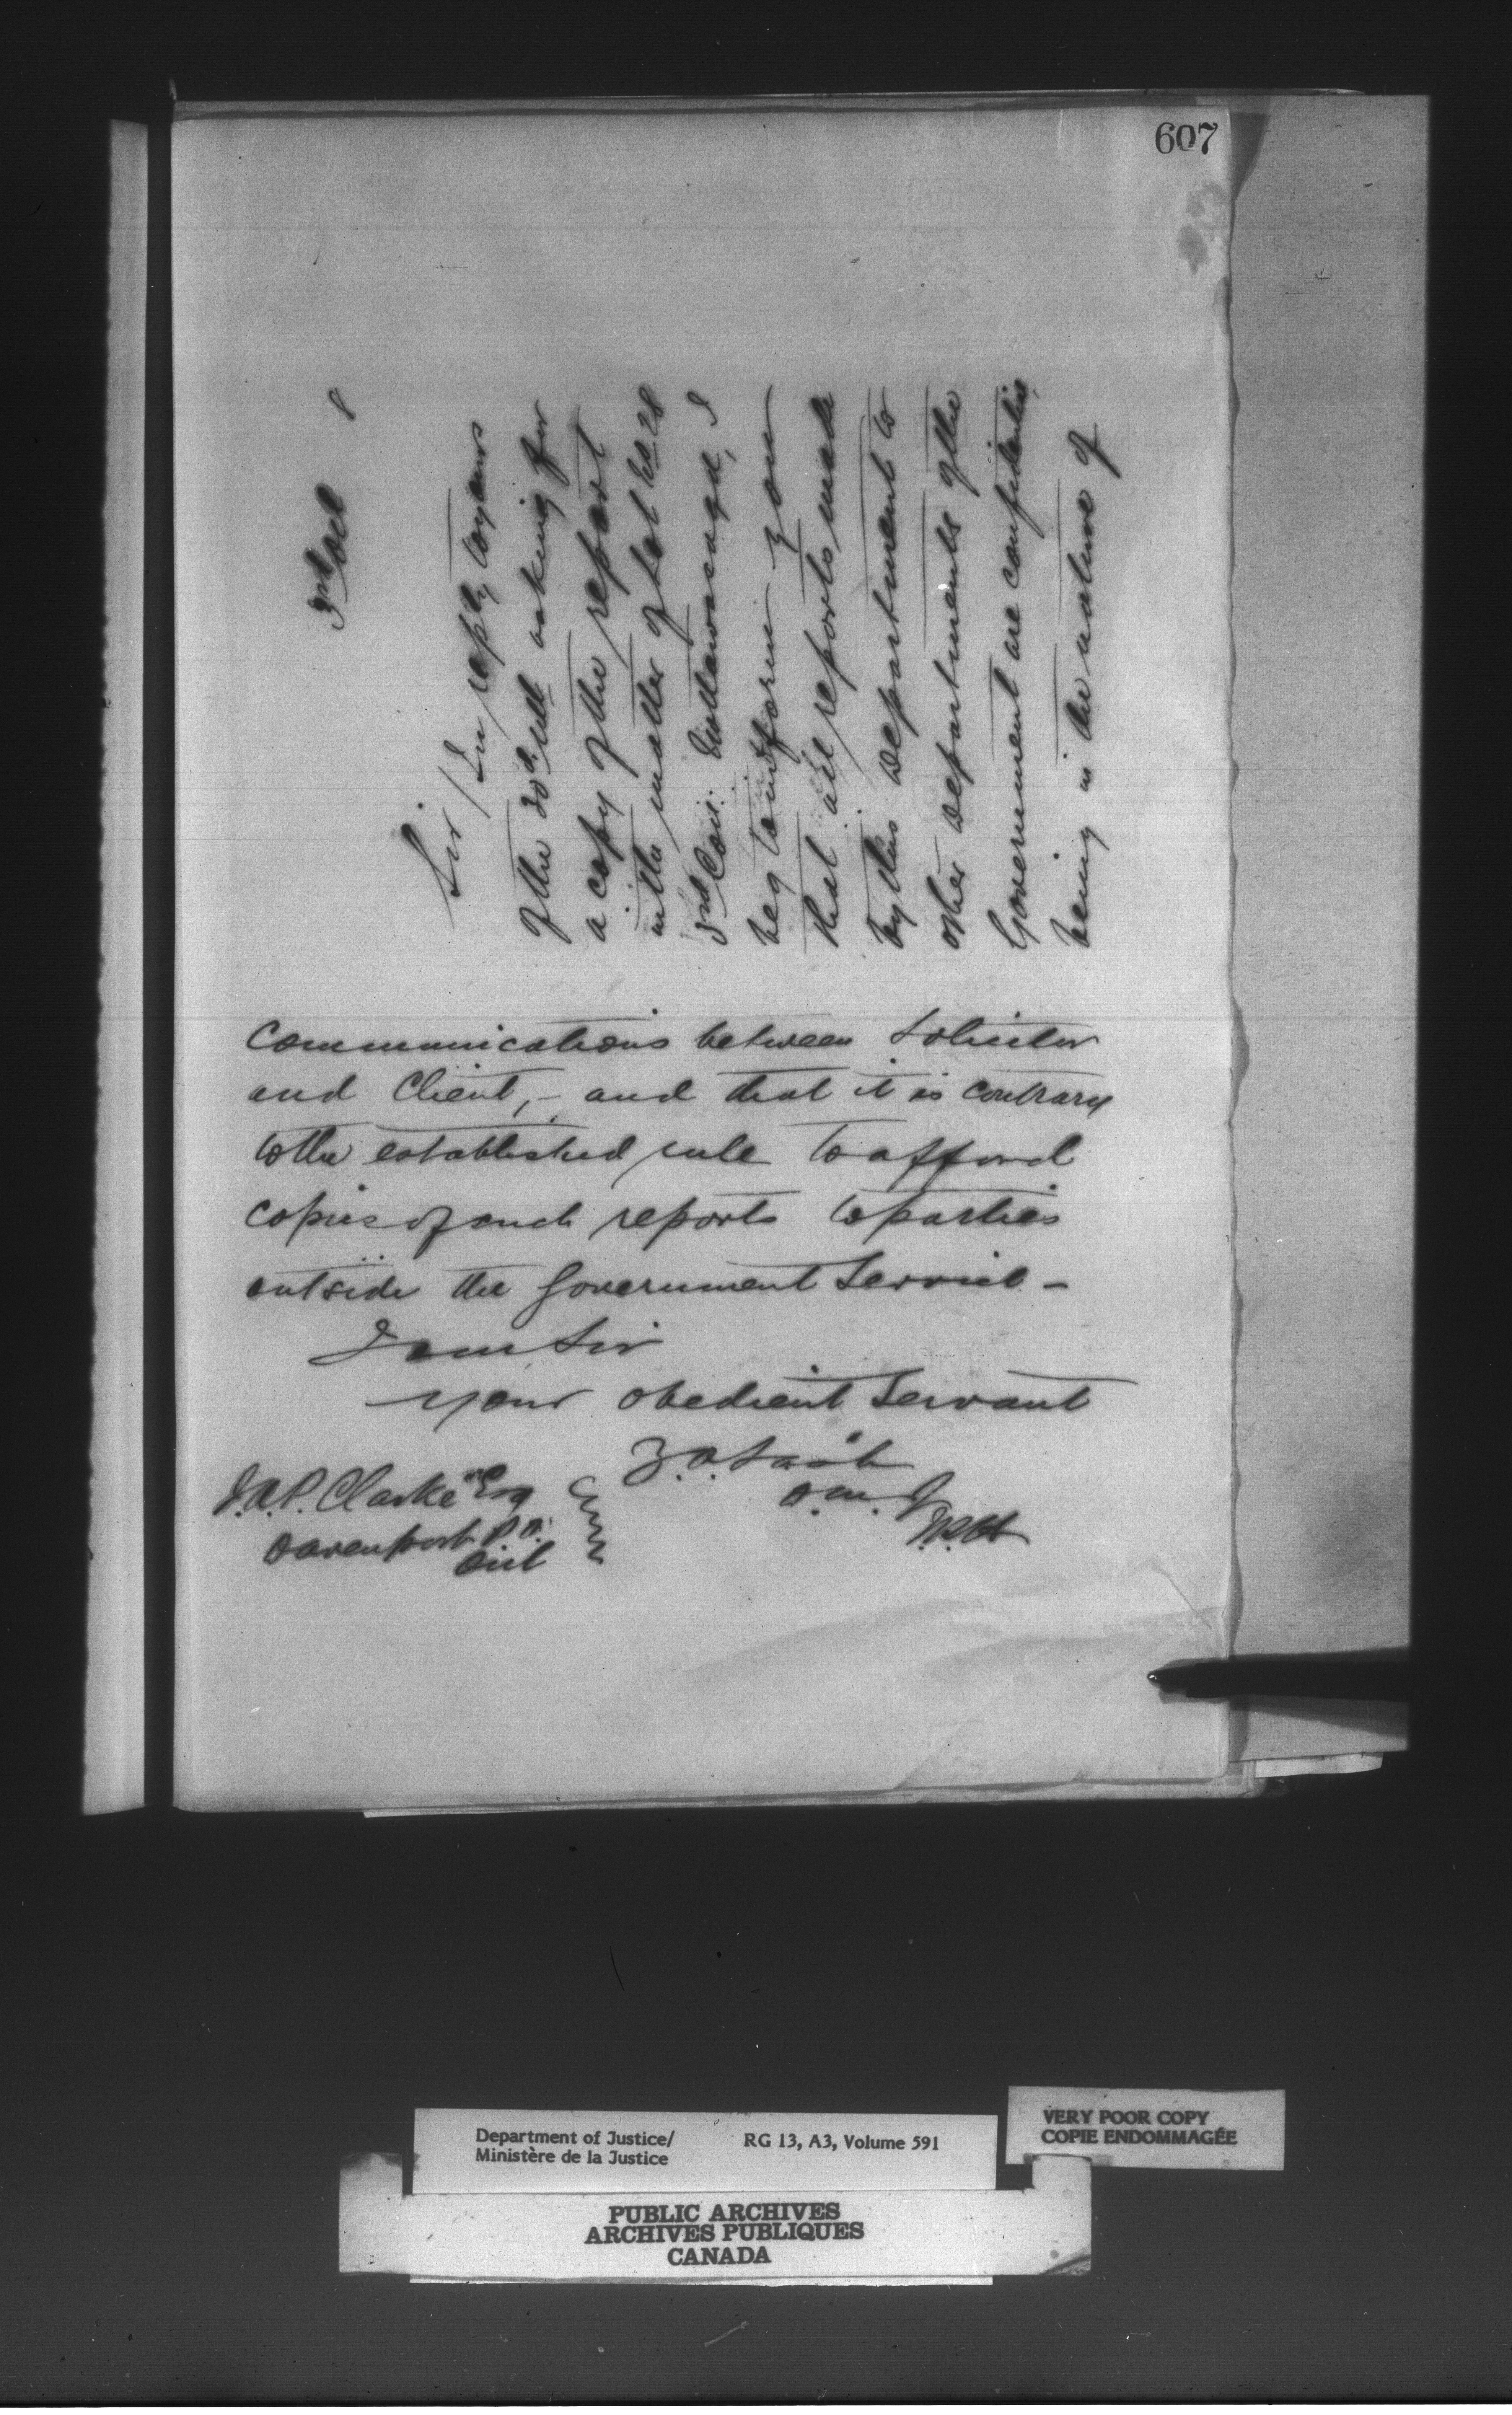 607
3rd Oct 8
Sir/ In reply to yours
of the 30th ult asking for
a copy of the report
in the matter of Lot No 28
3rd Con: I
beg to inform you
that all reports made
by this Department to
other Departments of the
Government are confidential
being in the nature of
Communications between Solicitor
and Client, - and that it is contrary
to the established rule to afford
copies of such reports to parties
outside the Government Service -
I am Sir
your obedient Servant
Z.A. Lash
D.M.J.
J.A.P. Clarke Esq
Davenport P.O.
Ont
Department of Justice/ RG 13, A3, Volume 591
Ministère de la Justice
VERY POOR COPY
COPIE ENDOMMAGÉE
PUBLIC ARCHIVES
ARCHIVES PUBLIQUES
CANADA